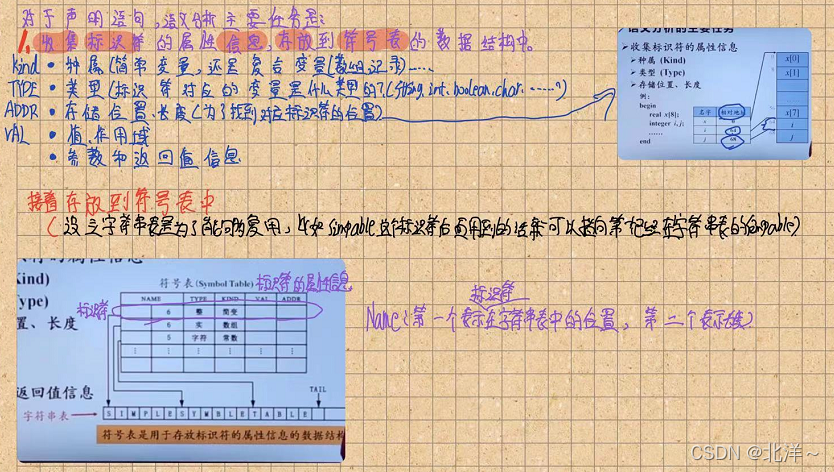 对于声明语句,语义分析主要任务是:
1.收集标识符的属性信息,存放到符号表的数据结构中。
kind • 种属(简单变量,还是复合变量(数组,记录)……
TYPE • 类型(标识符对应的变量是什么类型的?(String,int,boolean,char……?)
ADDR • 存储位置、长度(为了找到对应标识符的位置)
VAL • 值,作用域
• 参数和返回值信息
语义分析的主要任务
➢收集标识符的属性信息
➢种属 (Kind)
➢类型 (Type)
➢存储位置、长度
例:
begin
real x[8];
integer i, j;
……
end
名字 相对地址
x 0
i 64
j 68
x[0]
x[1]
x[7]
i
j
接着存放到符号表中
(设立字符串表是为了
Kind)
Type)
置、长度
返回值信息
符号表(Symbol Table)
标识符的属性信息
NAME TYPE KIND VAL ADDR
标识符
6 整 简变
6 实 数组
5 字符 常数
TAIL
字符串表
S I M P L E S Y M B L E T A B L E
符号表是用于存放标识符的属性信息的数据结构
标识符
Name(第一个表示在字符串表中的位置,第二个表示长度)
CSDN @北洋~